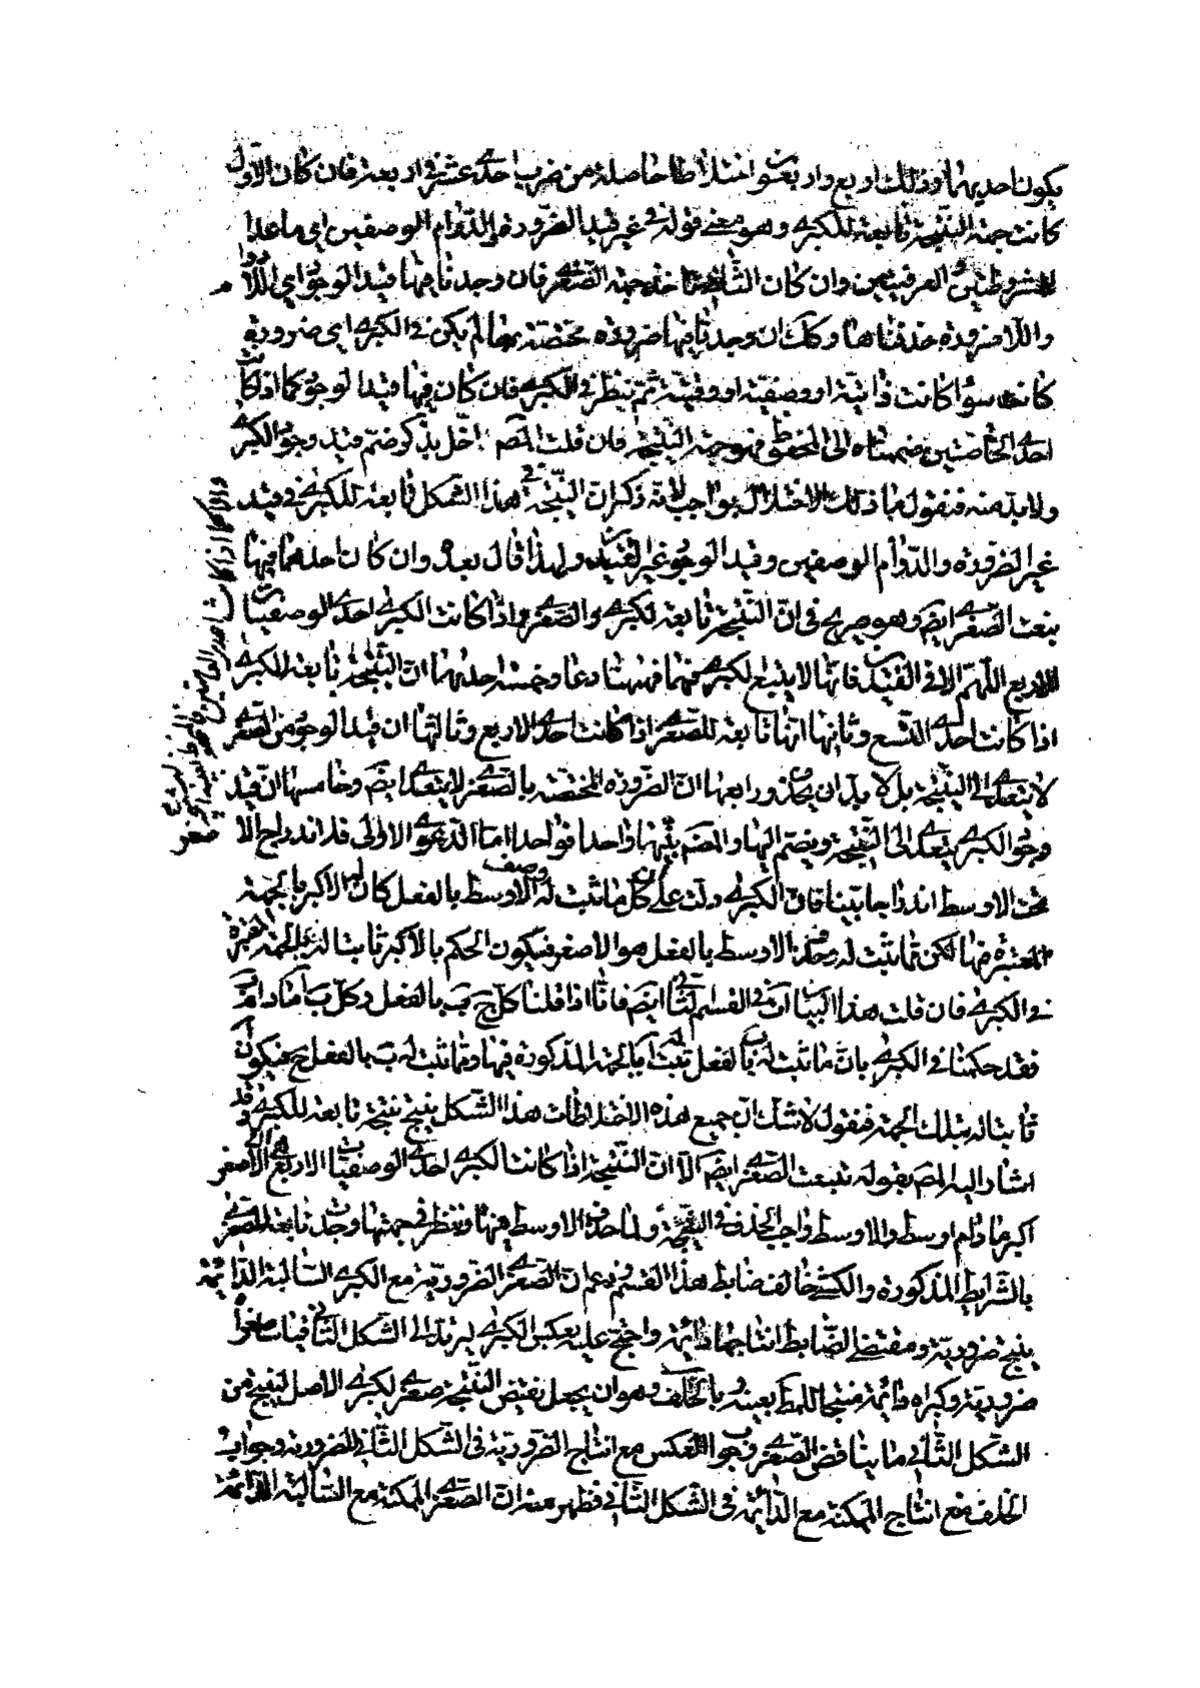 يكون احديهما وذلك اربع واربعون اختلاطا حاصلة من ضرب احدى عشر فى اربعة فان كان الاول
كانت جهة النتيجة تابعة للكبرى وهو معنى قوله فى غير قيد الضرورة والدوام الوصفيين اى ماعدا
المشروطتين والعرفيتين وان كان الثانى فتأخذ جهة الصغرى فان وجدنا فيها قيد الوجود اى اللادوام
واللاضرورة حذفناها وكذلك ان وجدنا فيها ضرورة مختصة بها لم يكن فى الكبرى اى ضرورة
كانت سواء كانت ذاتية او وصفية او وقتية ثم ننظر فى الكبرى فان كان فيها قيد الوجود كما اذا كانت
احدى الخاصتين ضممناه الى المحفوظ فهو جهة النتيجة فان قلت المص اخل بذكر ضم قيد وجود الكبرى
ولابد منه فنقول ما ذلك الاختلال بواجب لانه ذكر ان النتيجة فى هذا الشكل تابعة للكبرى فى قيد
غير الضرورة والدوام الوصفيين وقيد الوجود غير القيدين ولهذا قال بعده وان كان احدهما فيها
تبعت الصغرى ايضا وهو صريح فى ان النتيجة تابعة للكبرى والصغرى اذا كانت الكبرى احدى الوصفيات
الاربع اللهم الا فى القيدين فانها لا يتبع الكبرى فيهما فههنا دعاوى خمس احديها ان النتيجة تابعة للكبرى
اذا كانت احدى التسع وثانيها انها تابعة للصغرى اذا كانت احدى الاربع وثالثها ان قيد الوجود من الصغرى
لا يتعدى الى النتيجة بل لابد ان يحذف ورابعها ان الضرورة المختصة بالصغرى لا يتعدى ايضا وخامسها ان قيد
وجود الكبرى يتعدى الى النتيجة وينضم اليها والمص بينها واحدا فواحدا اما الدعوى الاولى فلاندراج الا
تحت الاوسط اندراجا بينا فان الكبرى دلت على ان كل ما ثبت له وصف الاوسط بالفعل كان له الاكبر بالجهة
المعتبرة فيها لكن مما ثبت له وصف الاوسط بالفعل هو الاصغر فيكون الحكم بالاكبر ثابتا له بالجهة المعتبرة
فى الكبرى فان قلت هذا البيان آت فى القسم الثانى ايضا فانا اذا قلنا كل ج ب بالفعل وكل ب ا مادام ب
فقد حكمنا فى الكبرى بان ما ثبت له ب بالفعل ثبت له ا بالجهة المذكورة فيها ومما ثبت له ب بالفعل ج فيكون ا
ثابتا له بتلك الجهة فنقول لا شك ان جميع هذه الاختلاطات هذا الشكل ينتج نتيجة تابعة للكبرى وقد
اشار اليه المص بقوله تبعت الصغرى ايضا الا ان النتيجة اذا كانت الكبرى احدى الوصفيات الاربع هى الاصغر
اكبر ما دام اوسط والاوسط واجب الحذف فى النتيجة ولما حذف الاوسط فيها ونظر فى جهتها وجدت تابعة للصغرى
بالشرايط المذكورة والكشى خالف ضابط هذا القسم فزعم ان الصغرى الضرورية مع الكبرى السالبة الدائمة
ينتج ضرورية ومقتضى الضابط انتاجها دائمة واحتج عليه بعكس الكبرى ليرتد الى الشكل الثانى فيات صغراه
ضرورية وكبراه دائمة منتجا للمط بعينه وبالخلف وهو ان يجعل نقيض النتيجة صغرى لكبرى الاصل لينتج من
الشكل الثانى ما يناقض الصغرى وجواب العكس منع انتاج الضرورية فى الشكل الثانى للضرورية وجواب
الخلف منع انتاج الممكنة مع الدائمة فى الشكل الثانى فظهر منه ان الصغرى الممكنة مع السالبة الدائمة